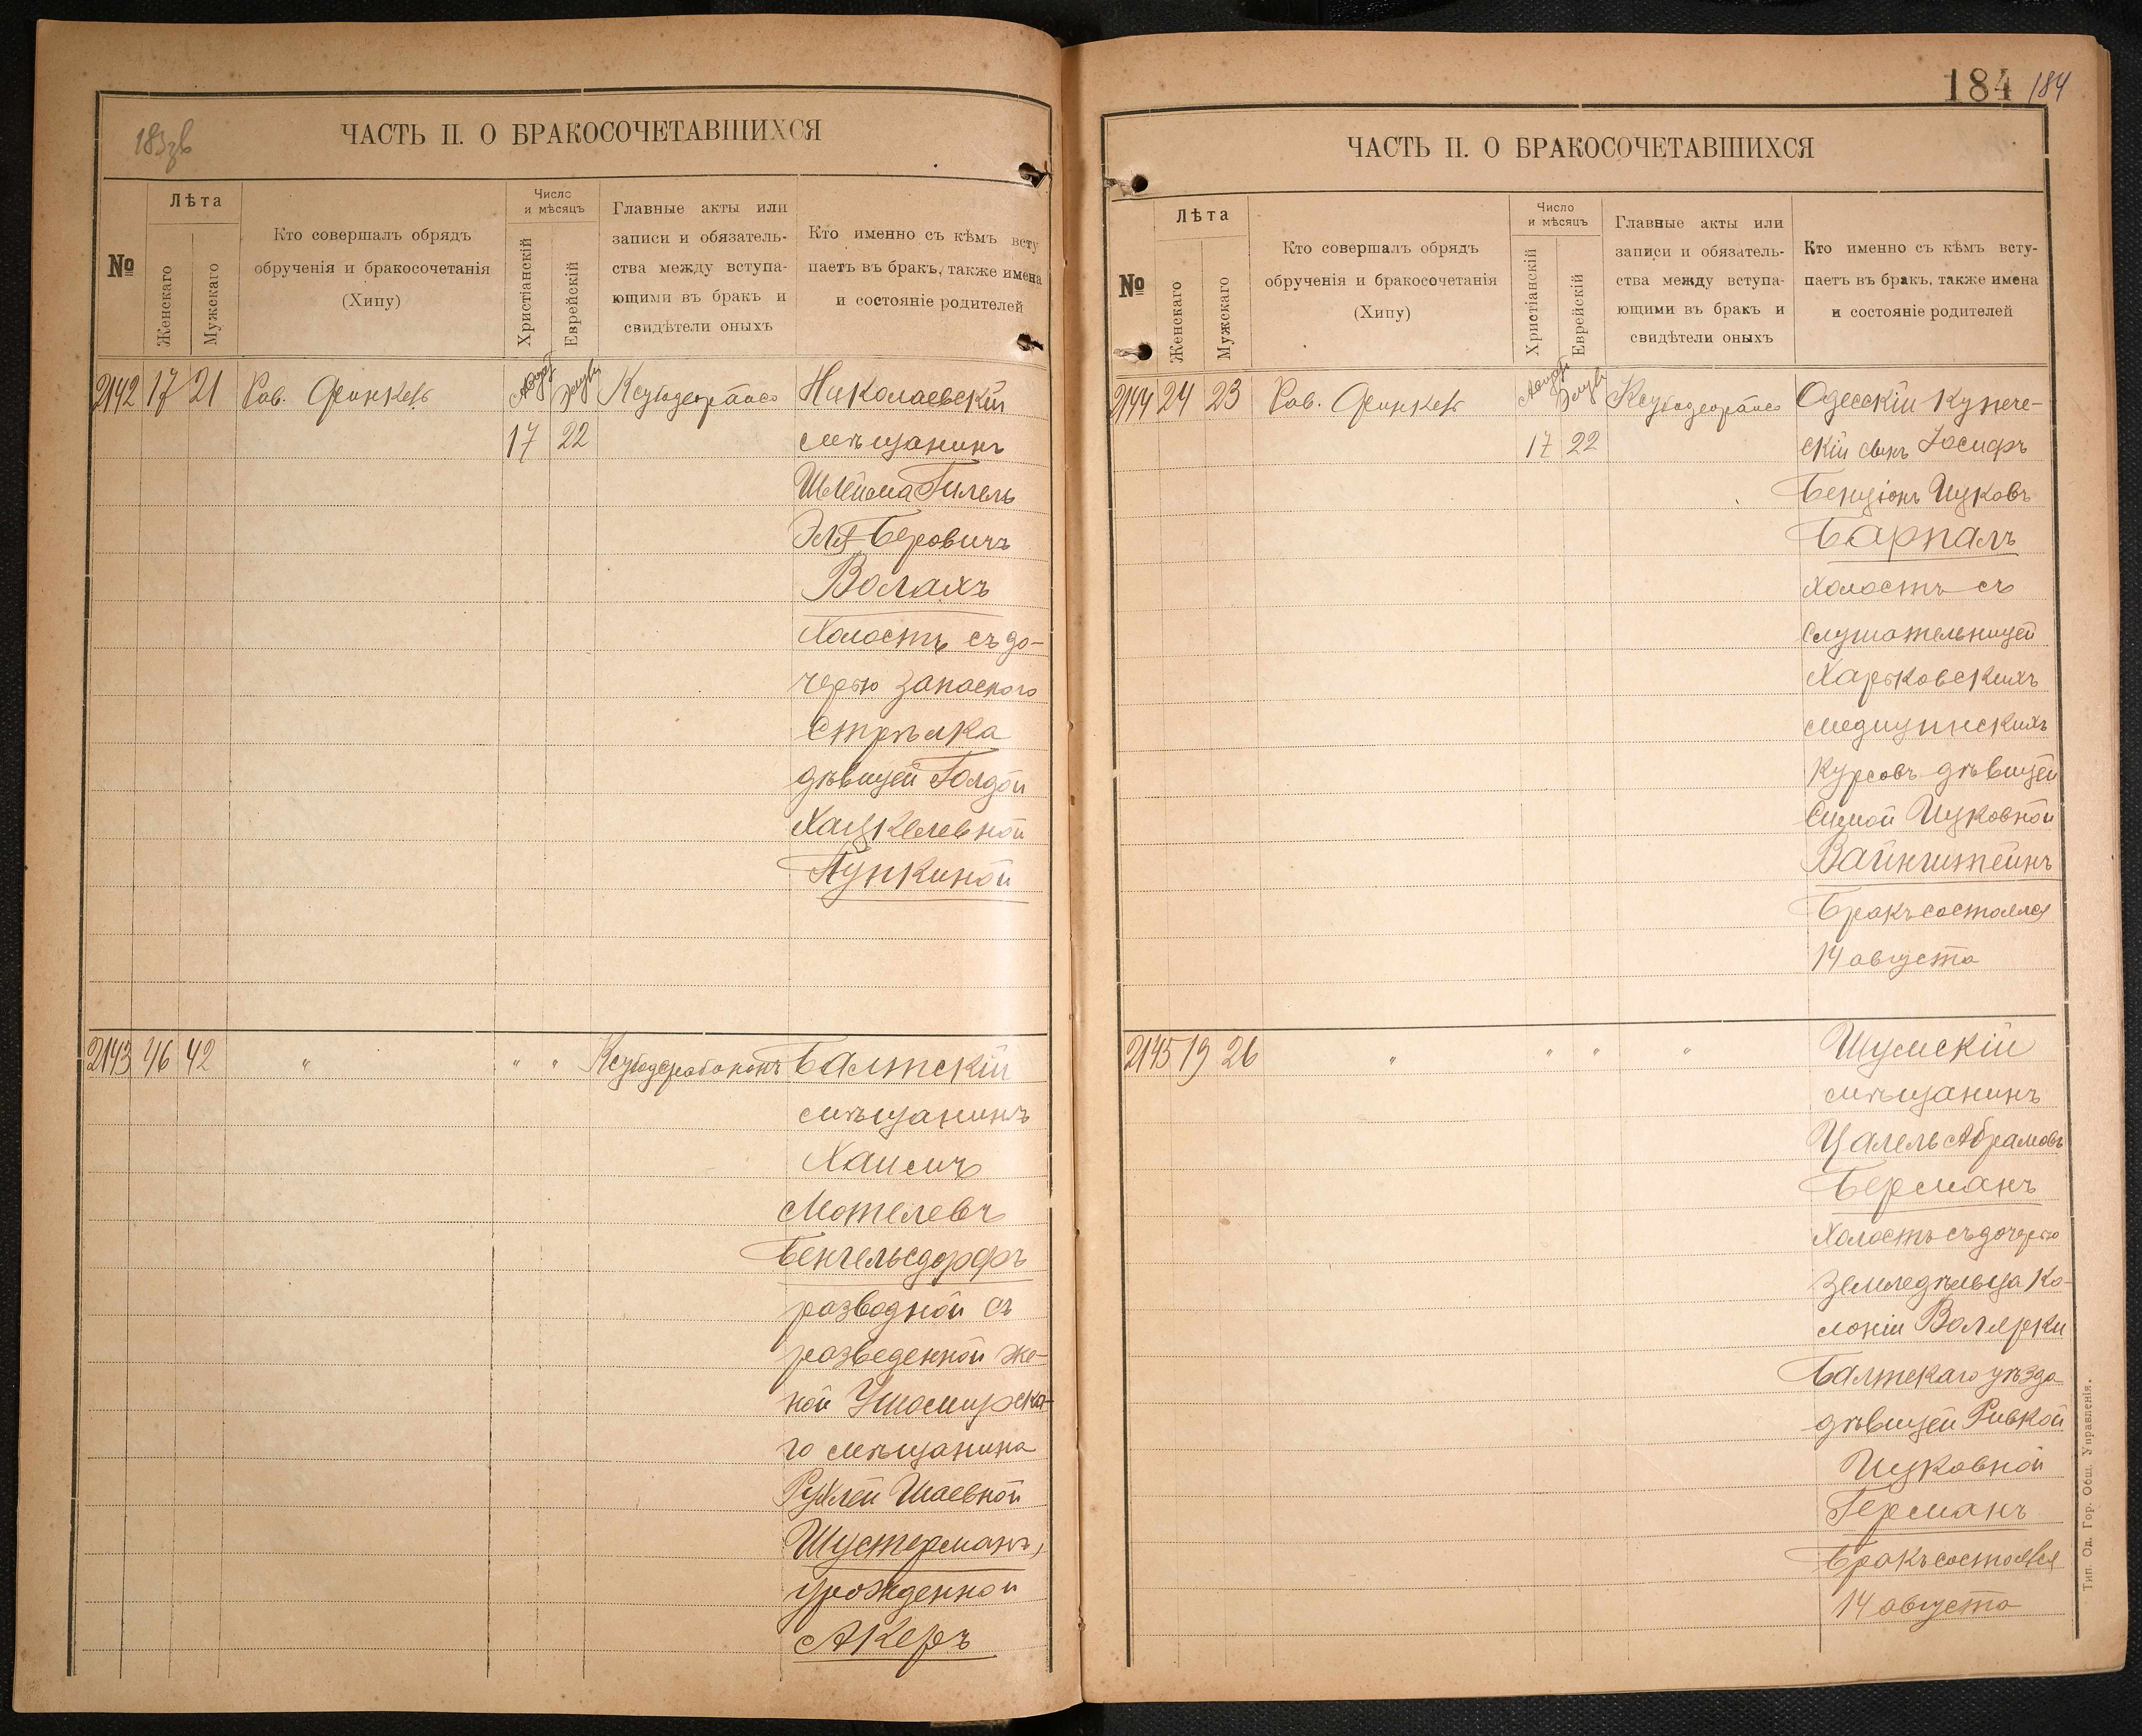 183зв
ЧАСТЬ II. О БРАКОСОЧЕТАВШИХСЯ
№
Лѣта
Женскаго
Мужскаго
Кто совершалъ обрядъ
обрученія и бракосочетанія
(Хипу)
Число
и мѣсяцъ
Христіанскій
Еврейскій
Главные акты или
записи и обязатель-
ства между вступа-
ющими въ бракъ и
свидѣтели оныхъ
Кто именно съ кѣмъ всту
паетъ въ бракъ, также имена
и состояніе родителей
2142 17 21 Рав. Август Элулъ Николаевскій
17 22 мѣщанинъ
Шлейма Гилель
Эля-Беровичъ
Волахъ
Холостъ съ до-
черью запасного
Стрѣлка
дѣвицей Голдой
Хацкелевной
Пункиной
2143 46 42 " " " Балтскій
мѣщанинъ
Хаимъ
Мотелевъ
Бенгельсдорфъ
разводной съ
разведенной же-
ной Ушомирска-
го мѣщанина
Рухлей Шаевной
Шустерманъ,
урожденной
Акеръ
184 184
ЧАСТЬ II. О БРАКОСОЧЕТАВШИХСЯ
№
Лѣта
Женскаго
Мужскаго
Кто совершалъ обрядъ
обрученія и бракосочетанія
(Хипу)
Число
и мѣсяцъ
Христіанскій
Еврейскій
Главные акты или
записи и обязатель-
ства между вступа-
ющими въ бракъ и
свидѣтели оныхъ
Кто именно съ кѣмъ всту-
паетъ въ бракъ, также имена
и состояніе родителей
2144 24 23 Рав. Август Элулъ Одесскій купече-
17 22 скій сынъ Іосифъ
Бенціонъ Ицковъ
Барпалъ
холостъ съ
слушательницей
Харьковскихъ
медицинскихъ
курсовъ дѣвицей
Симой Ицковной
Вайнштейнъ
Бракъ состоялся
14 августа
2145 19 26 " " " " Шумскій
мѣщанинъ
Цалель Абрамовъ
Берманъ
Холостъ съ дочерью
земледѣльца ко-
лоніи Волярки
Балтскаго уѣзда
дѣвицей Ривкой
Ицковной
Германъ
Бракъ состоялся
14 августа
Тип. Од. Гор. Общ. Управленія.